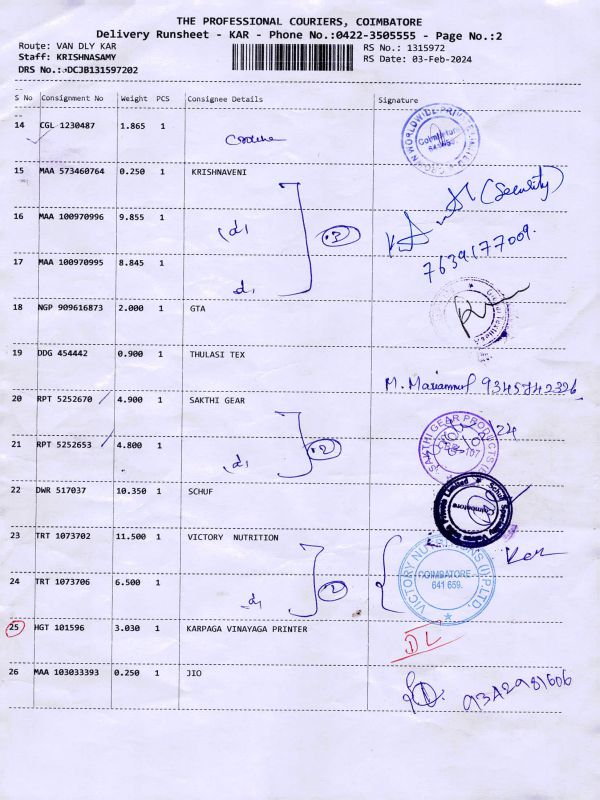 THE PROFESSIONAL COURIERS, COIMBATORE
Delivery Runsheet - KAR - Phone No.:0422-3505555 - Page No.:2
Route: VAN DLY KAR RS No.: 1315972
Staff: KRISHNASAMY RS Date: 03-Feb-2024
DRS No.: DCJB131597202
S No Consignment No Weight PCS Consignee Details Signature
14 CGL 1230487 1.865 1
CROWN WORLDWIDE PRIVATE LIMITED Coimbatore
15 MAA 573460764 0.250 1 KRISHNAVENI
(Security)
16 MAA 100970996 9.855 1 (d1 3
7639177009.
17 MAA 100970995 8.845 1 d1
18 NGP 909616873 2.000 1 GTA
19 DDG 454442 0.900 1 THULASI TEX
M. 9345742326
20 RPT 5252670 4.900 1 SAKTHI GEAR
SAKTHI GEAR PRODUCTS
21 RPT 5252653 4.800 1 (d1 2
22 DWR 517037 10.350 1 SCHUF
Coimbatore
23 TRT 1073702 11.500 1 VICTORY NUTRITION
VICTORY NUTRITIONS (I) P LTD. COIMBATORE 641 659.
24 TRT 1073706 6.500 1 d1 2
25 HGT 101596 3.030 1 KARPAGA VINAYAGA PRINTER DL
26 MAA 103033393 0.250 1 JIO